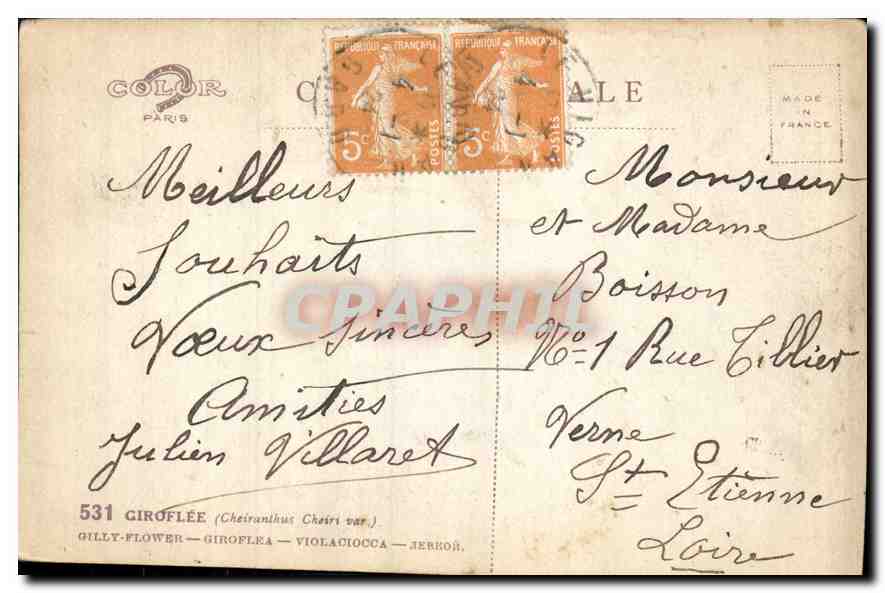 COLOR
PARIS
REPUBLIQUE FRANÇAISE
5c
POSTES
REPUBLIQUE FRANÇAISE
5c
POSTES
ALE
MADE
IN
FRANCE
Meilleurs
Souhaits
Vœux sincères
Amitiés
Julien Villaret
Monsieur
et Madame
Boisson
No 1 Rue Tillier
Verne
St Etienne
Loire
CPAPHIL
531 GIROFLÉE (Cheiranthus Cheiri var.)
GILLY-FLOWER — GIROFLEA — VIOLACIOCCA — ЛЕВКОЙ.